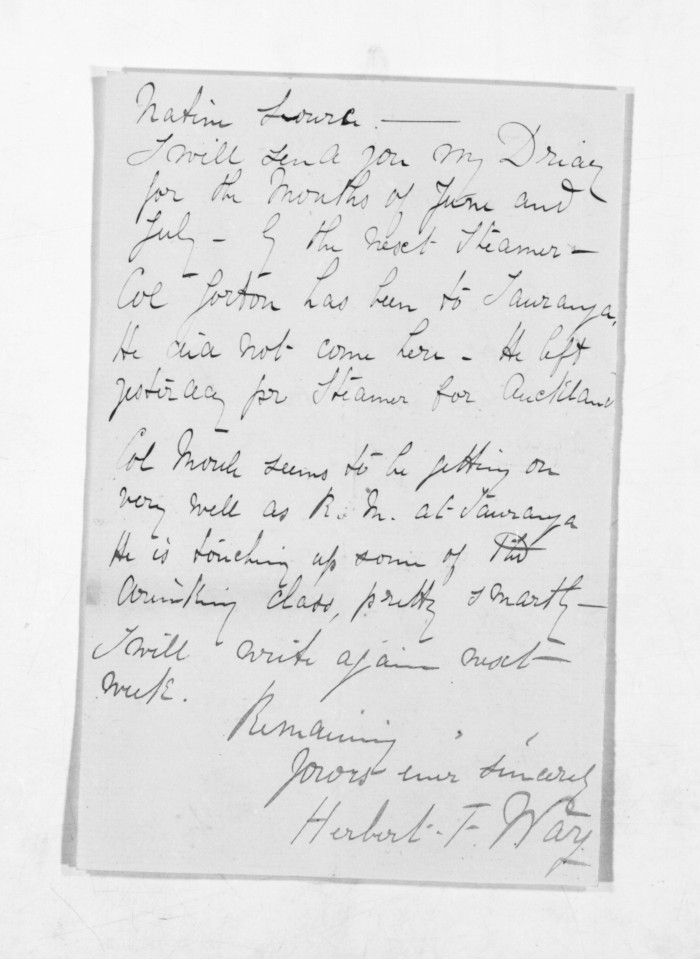 Native source. —
I will send you my Driay
for the Months of June and
July - by the next Steamer -
Col Gorton has been to Tauranga,
He did not come here - He left
yesterday per Steamer for Auckland
Col Moule seems to be getting on
very well as R. M. at Tauranga
He is touching up some of the
drinking class, pretty smartly -
I will write again next
week.
Remaining , ,
Yours ever sincerely
Herbert. F. Way